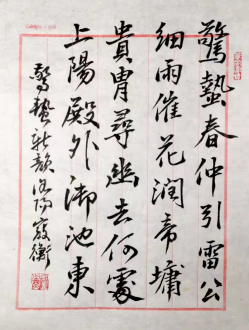 驚蟄春仲引雷公
細雨催花潤帝墉
貴胄尋幽去何處
上陽殿外御池東
驚蟄新韻洛陽